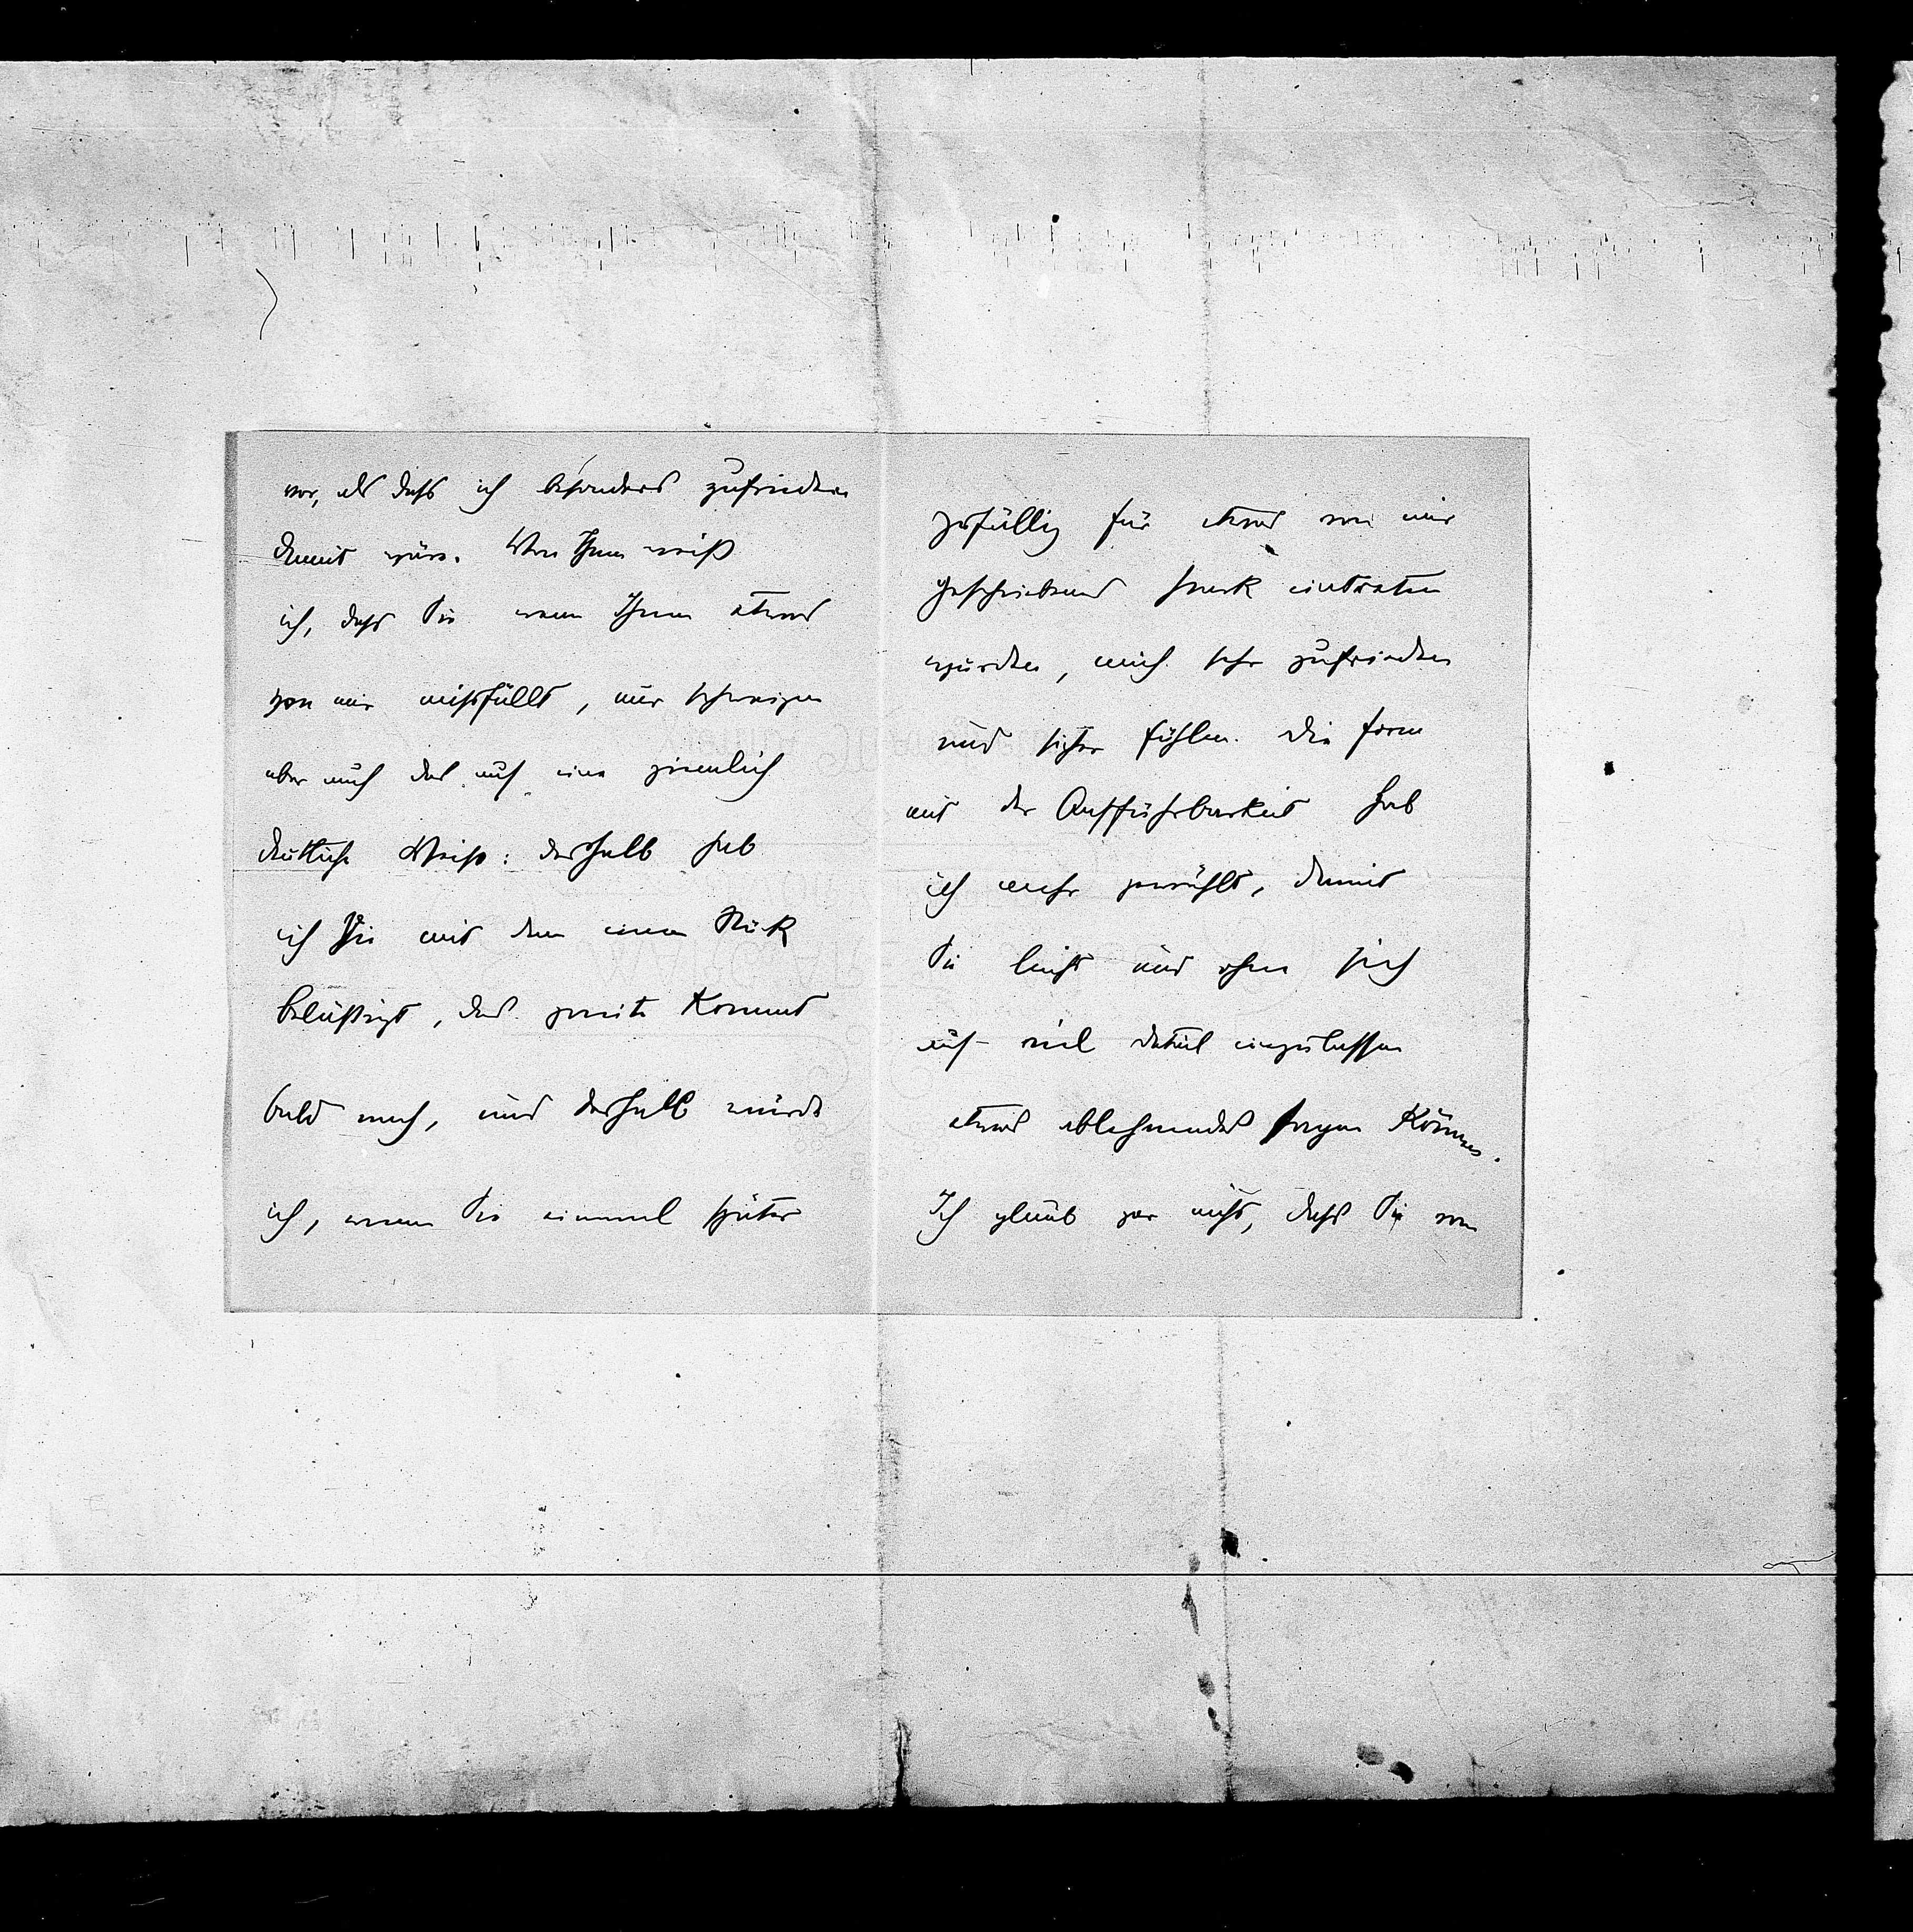 vor, als dass ich besonders zufrieden
damit wäre. Von Ihnen weiß
ich, dass Sie wenn Ihnen etwas
von mir missfällt, nur schweigen
aber auch das auf eine ziemlich
deutliche Weise: deshalb hab
ich Sie mit dem einen Stück
belästigt, das zweite kommt
bald nach, und deshalb würde
ich, wenn Sie einmal später
zufällig für etwas von mir
geschriebenes stark eintreten
würden, mich sehr zufrieden
und sicher fühlen. Die Form
mit der Aufführbarkeit hab
ich mehr gewählt, damit
Sie leicht und ohne sich
auf viel detail einzulassen
etwas ablehnendes sagen können.
Ich glaub gar nicht, dass Sie von